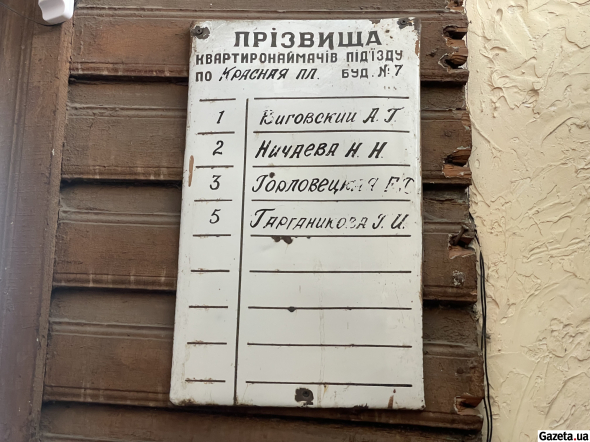 ПРІЗВИЩА
КВАРТИРОНАЙМАЧІВ ПІД'ЇЗДУ
ПО КРАСНАЯ ПЛ. БУД. № 7
1 Виговский А. Г.
2 Ничаева Н. Н.
3 Горловецкая
5 Гарганикова И.
Gazeta.ua